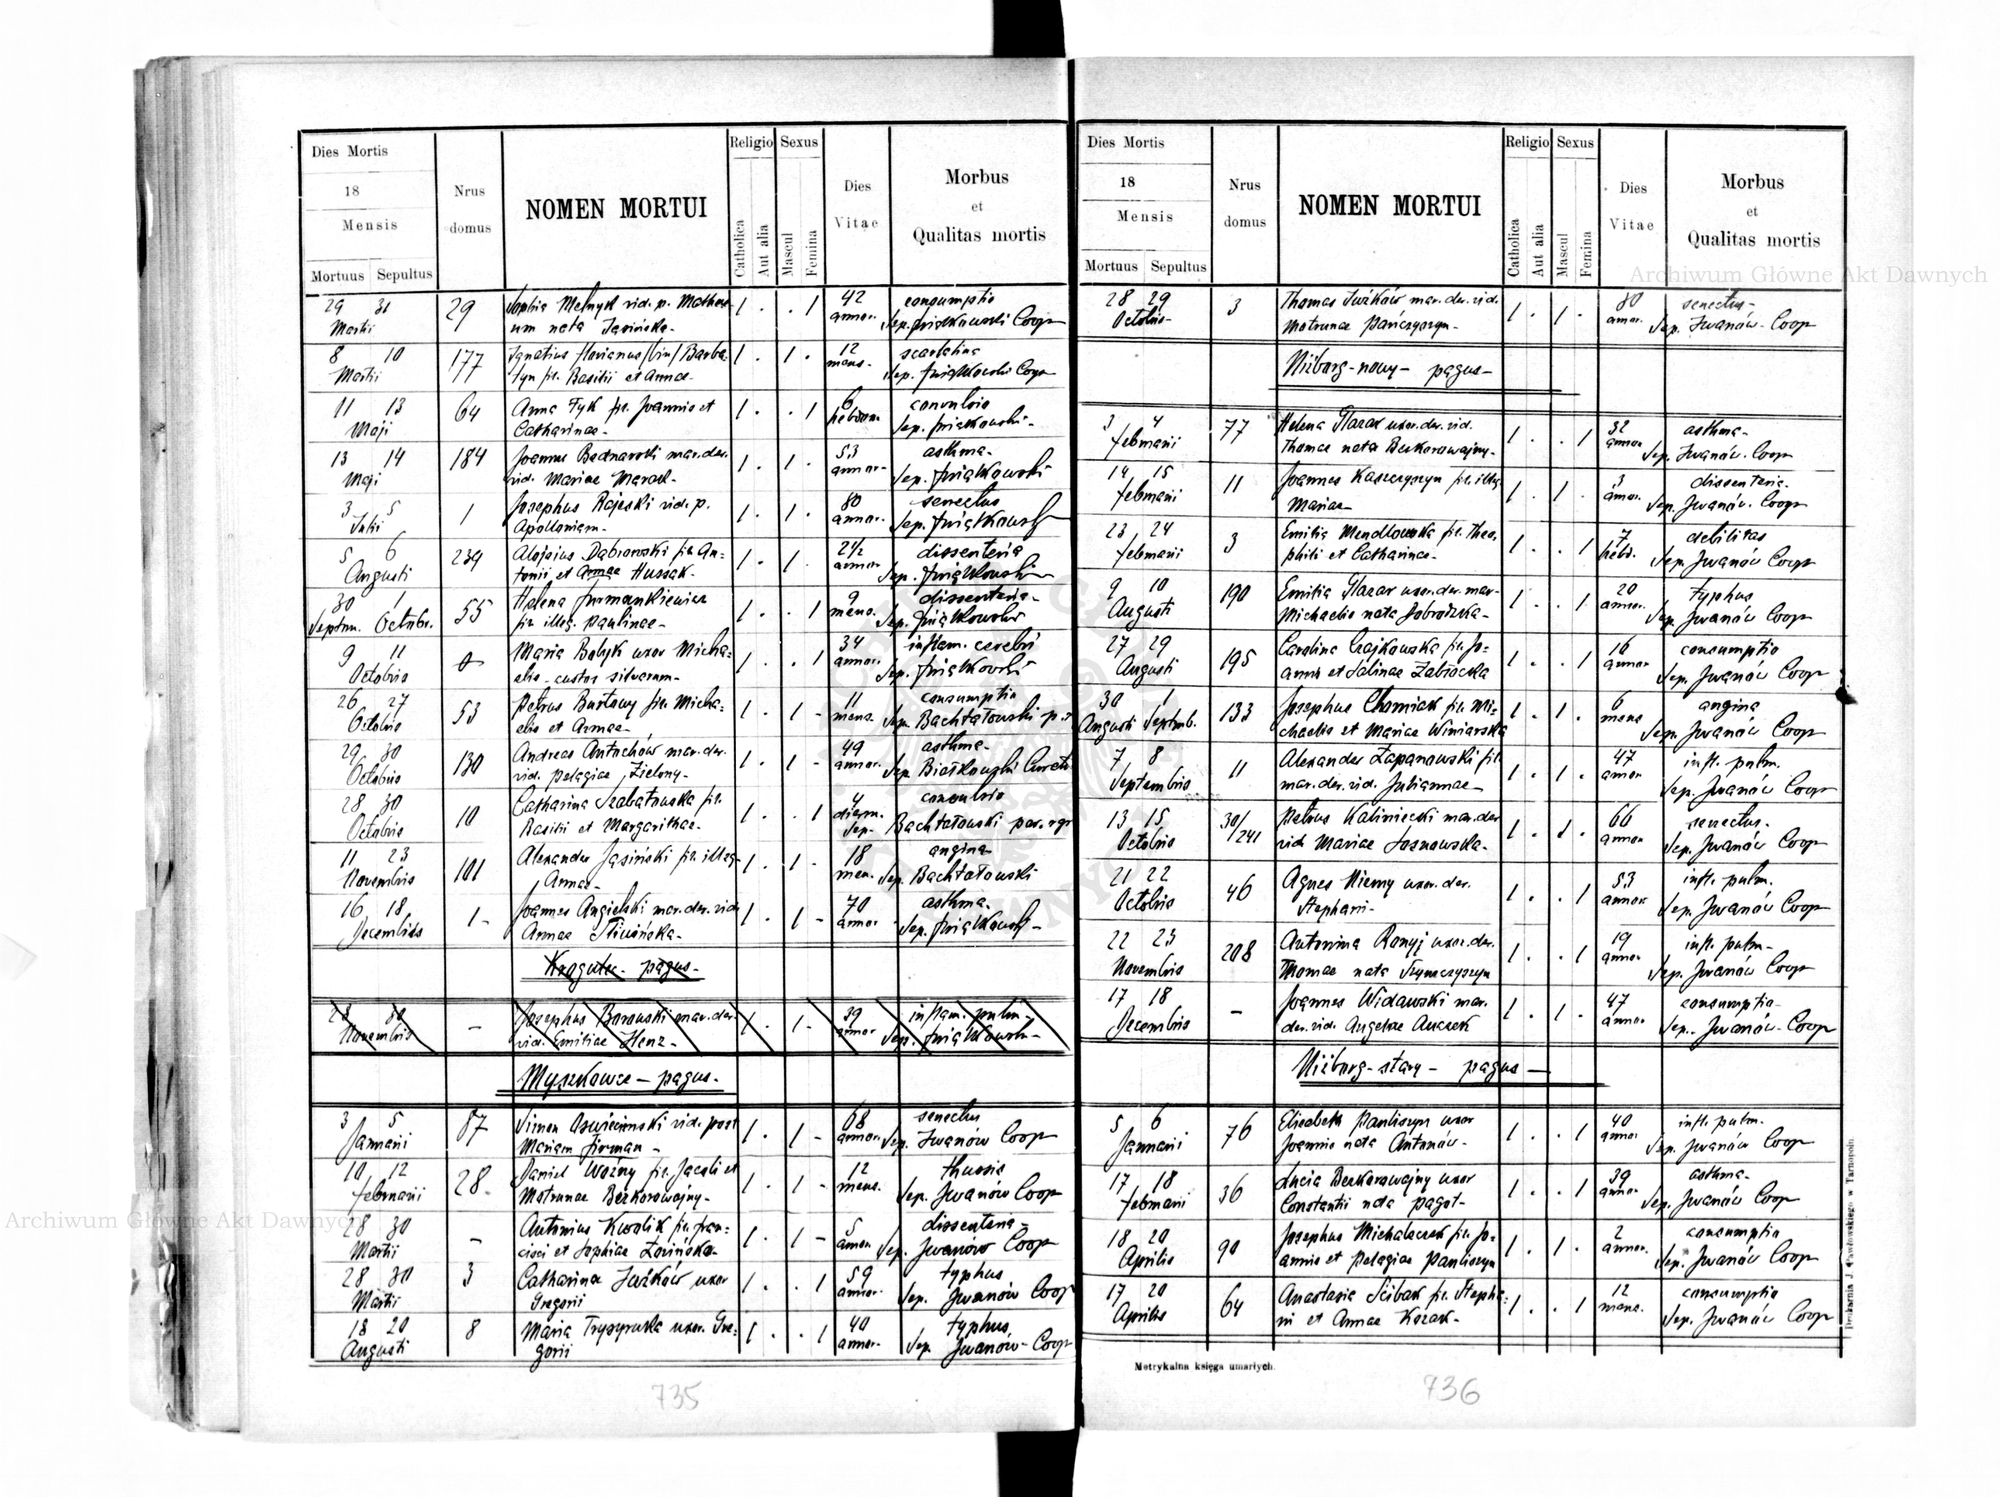 Dies Mortis
18
Mensis
Mortuus Sepultus
Nrus
domus
NOMEN MORTUI
Religio
Catholica
Aut alia
Sexus
Mascul
Femina
Dies
Vitae
Morbus
et
Qualitas mortis
29 31 29 Sophia Melnyk vid. p. 1 . . 1 42 consumptio
Martii nata Jasińska- annor. Sep. Coop
8 10 177 Ignatius Florianus 1 . 1 . 12 scarlatina
Martii fil. Basilii et Annae- mens. Sep. Coop
11 13 64 Anna Tyk fil. Joannis et 1 . . 1 6 convulsio
Maji Catharinae- hebdom. Sep.
13 14 184 Joannes Bednarski mar. der. 1 . 1 . 53 asthma-
Maji vid. Mariae annor- Sep.
3 5 1 Josephus Rajski vid. p. 1 . 1 . 80 senectus
Julii Apolloniam- annor. Sep.
5 6 239 Aloisius Dąbrowski fil. An= 1 . 1 . 2½ dissenteria
Augusti tonii et Annae Hussak- annor. Sep.
30 1 55 Helena Furmankiewicz 1 . . 1 9 dissenteria-
Septem. Octobr. fil. illeg. Paulinae- mens. Sep.
9 11 0 Maria Babyk uxor Micha= 1 . . 1 34 inflam. cerebri
Octobris elis- custos silvarum- annor. Sep.
26 27 53 Petrus Burtowy fil. Micha= 1 . 1 - 11 consumptio
Octobris elis et Annae- mens. Sep. Bachtałowski
29 30 130 Andreas Antochów mar. der. 1 . 1 - 49 asthma-
Octobris vid. Pelagiae Zielony- annor. Sep. Białkowski
28 30 10 Catharina Szabatowska fil. 1 . . 1 4 convulsio
Octobris Basilii et Margarithae- dierum. Sep. Bachtałowski
11 23 101 Alexander Jasiński fil. illeg- 1 . 1 - 18 angina
Novembris Annae- men. Sep. Bachtałowski
16 18 1- Joannes Angielski mar. der. vid. 1 . 1 - 70 asthma-
Decembris Annae annor. Sep.
pagus-
28 30 - Josephus Barowski mar. der. 1 . 1 - 39 inflam. pulm-
Novembris vid. Emiliae Henz- annor Sep.
Myszkowce - pagus-
3 5 87 Simon vid. post 1 . 1 - 68 senectus
Januarii Mariam annor. Sep. Iwanów Coop
10 12 28- Daniel Woźny fil. Jacobi et 1 . 1 - 12 thussis
Februarii Motrunae Bezkorowajny- mens. Sep. Iwanów Coop
28 30 - Antonius Kwolik fil. Fran= 1 . 1 - 5 dissenteria-
Martii cisci et Sophiae annor. Sep. Iwanów Coop
28 30 3 Catharina Iużków uxor 1 . . 1 59 typhus
Martii Gregorii annor. Sep. Iwanów Coop
18 20 8 Maria uxor. Gre= 1 . . 1 40 typhus
Augusti gorii annor. Sep. Iwanów- Coop
735
Dies Mortis
18
Mensis
Mortuus Sepultus
Nrus
domus
NOMEN MORTUI
Religio
Catholica
Aut alia
Sexus
Mascul
Femina
Dies
Vitae
Morbus
et
Qualitas mortis
28 29 3 Thomas Iużków mar. der. vid. 1 . 1 . 80 senectus-
Octobris- Motrunae Pańczyszyn- annor. Sep. Iwanów- Coop
Niżborg-nowy- pagus-
3 4 77 Helena Glazar uxor. der. vid. 1 . . 1 32 asthma-
Februarii Thomae nata Bezkorowajny- annor Sep. Iwanów. Coop
14 15 11 Joannes Kaszczyszyn fil. illeg. 1 . 1 . 3 dissenteria-
Februarii Mariae- annor. Sep. Iwanów. Coop
23 24 3 Emilia Mendlowska fil. Theo- 1 . . 1 7 debilitas
Februarii phili et Catharinae- hebd. Sep. Iwanów Coop
9 10 190 Emilia Glazar uxor. der. mar- 1 . . 1 20 typhus
Augusti Michaelis nata Dobrodzka- annor. Sep. Iwanów Coop
27 29 195 Carolina Czajkowska fil. Jo= 1 . . 1 16 consumptio
Augusti annis et Salinae Zabłocka annor Sep. Iwanów Coop
30 1 133 Josephus Chomiak fil. Mi= 1 . 1 . 6 angina
Augusti Septemb. chaelis et Mariae Winiarska mens Sep. Iwanów Coop
7 8 11 Alexander Łapanowski fil. 1 . 1 . 47 infl. pulm.
Septembris mar. der. vid. Juliannae- annor Sep. Iwanów Coop
13 15 30/241 Petrus Kaliniecki mar. der 1 . 1 . 66 senectus-
Octobris vid. Mariae Sosnowska- annor Sep. Iwanów Coop
21 22 46 Agnes Niemy uxor. der. 1 . . 1 53 infl. pulm.
Octobris Stephani- annor Sep. Iwanów Coop
22 23 208 Antonina Ronyj uxor. der. 1 . . 1 19 infl. pulm-
Novembris Thomae nata Szymczyszyn annor Sep. Iwanów Coop
17 18 - Joannes Widawski mar. 1 . 1 . 47 consumptio-
Decembris der. vid. Angelae annor. Sep.. Iwanów- Coop
Niżborg-stary- pagus-
5 6 76 Elisabeth Pauliszyn uxor 1 . . 1 40 infl. pulm.
Januarii Joannis nata Antonów- annor. Sep. Iwanów Coop
17 18 36 Lucia Bezkorowajny uxor 1 . . 1 39 asthma-
Februarii Constantii nata annor. Sep. Iwanów Coop
18 20 90 Josephus Michalaczek fil. Jo= 1 . 1 . 2 consumptio
Aprilis annis et Pelagiae Pauliszyn annor. Sep. Iwanów Coop
17 20 64 Anastasia Ścibak fil. Stepha= 1 . . 1 12 consumptio
Aprilis ni et Annae Kozak- mens. Sep. Iwanów Coop
Metrykalna księga umarłych.
Drukarnia J. Pawłowskiego w Tarnopolu.
736
Archiwum Główne Akt Dawnych
Archiwum Główne Akt Dawnych